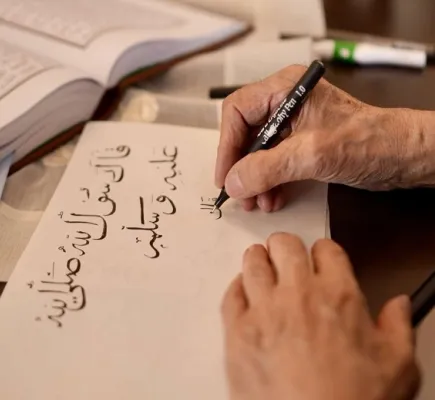 قال رسول الله صلى الله
عليه وسلم
Calligraphy Pen 1.0